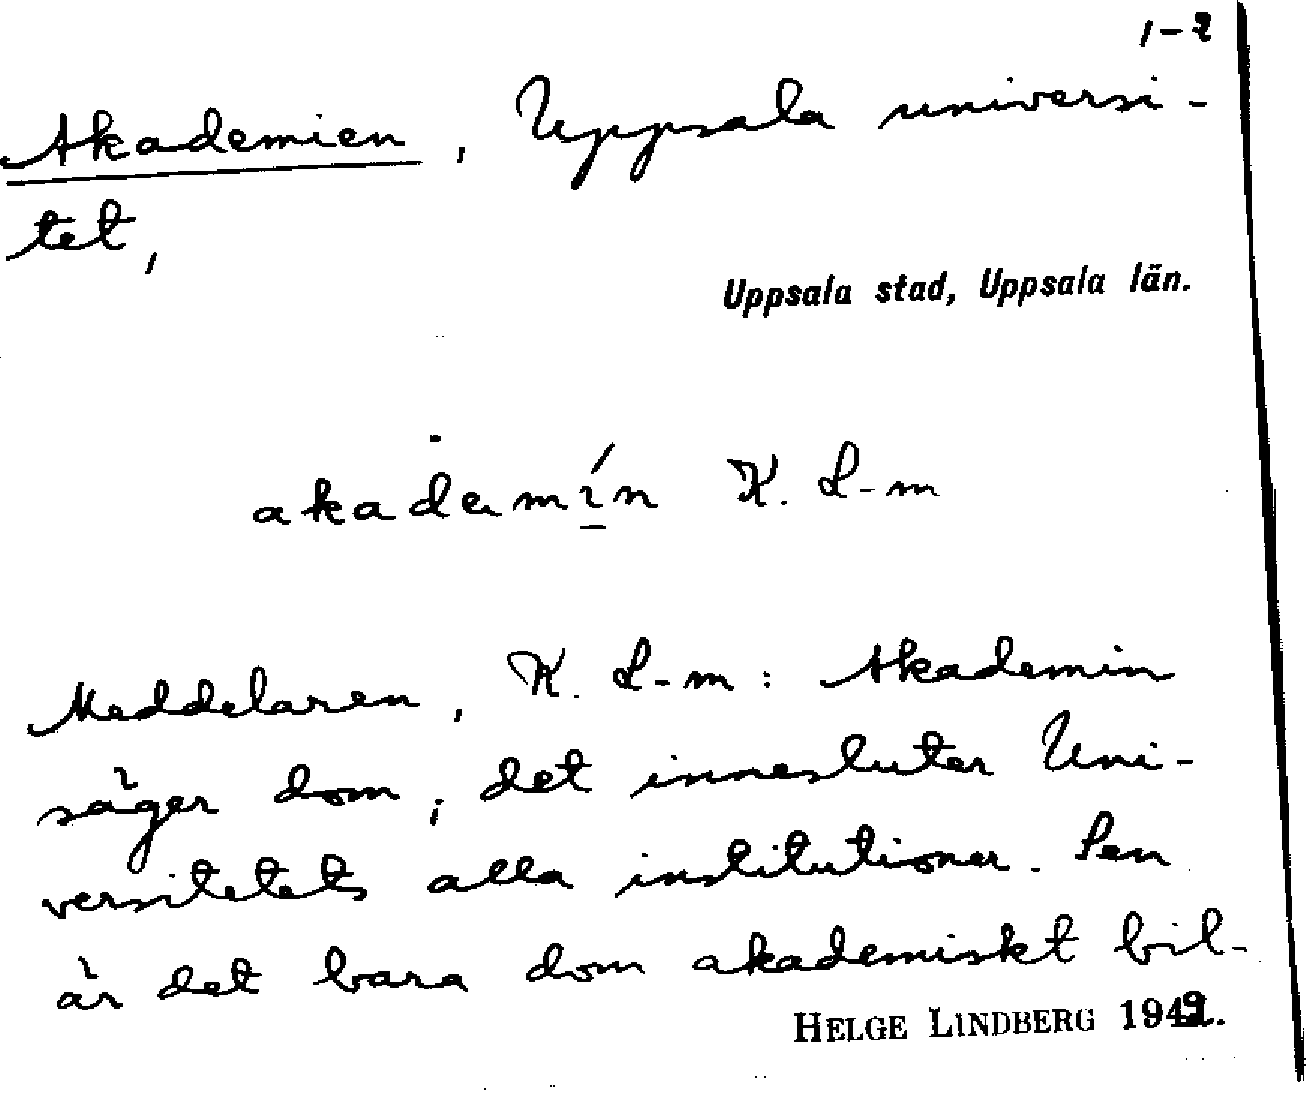 1-2
Akademien, Uppsala universi-
tet,
Uppsala stad, Uppsala län.
akademín K. L-m
Meddelaren, K. L-m: Akademin
säger dom, det innesluter Uni-
versitetets alla institutioner. Sen
är det bara dom akademiskt bil-
HELGE LINDBERG 1949.